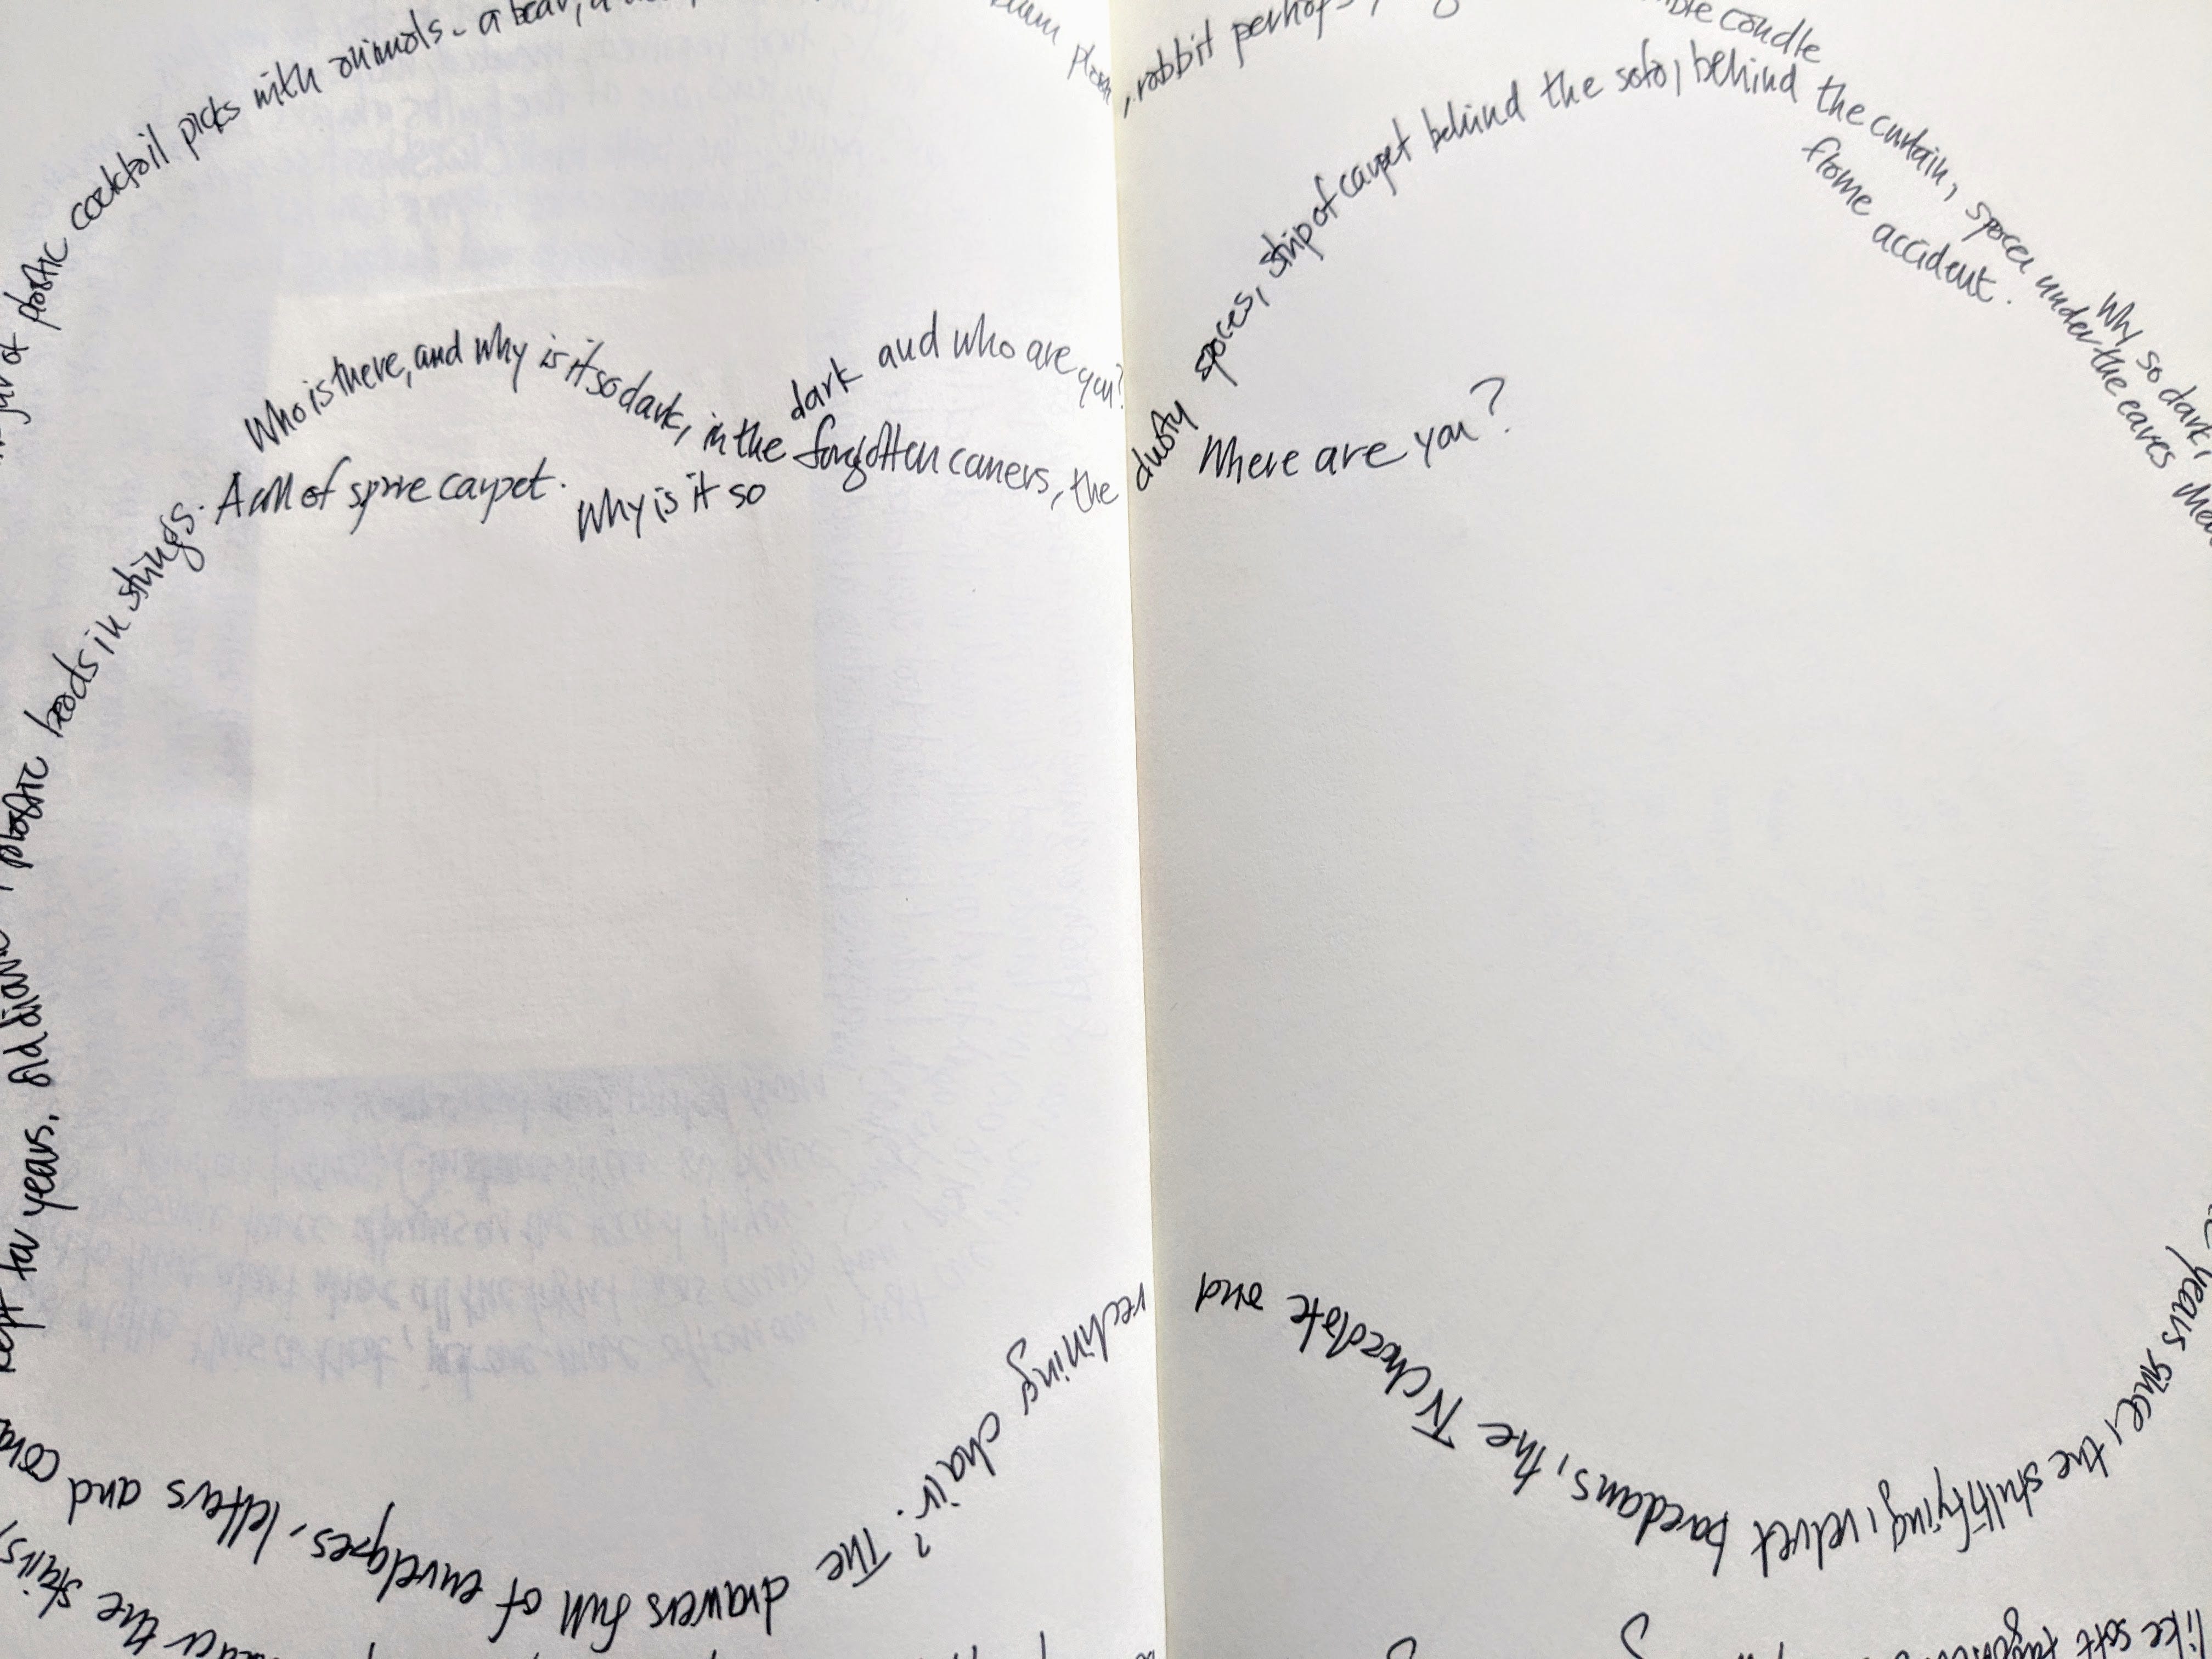 of plastic cocktail picks with animals - a bear, a
plum
, rabbit perhaps
candle
flame accident.
Who is there, and why is it so dark, in the forgotten corners, the dusty spaces, strip of carpet behind the sofa, behind the curtain, spaces under the eaves
Why is it so dark and who are you?
Where are you?
Why so dark,
kept for years. Old plastic beads in strings. A roll of spare carpet.
years since, the stultifying, velvet boredoms, the TV chocolate and reclining chair? The drawers full of envelopes, letters and
the stairs,
like soft